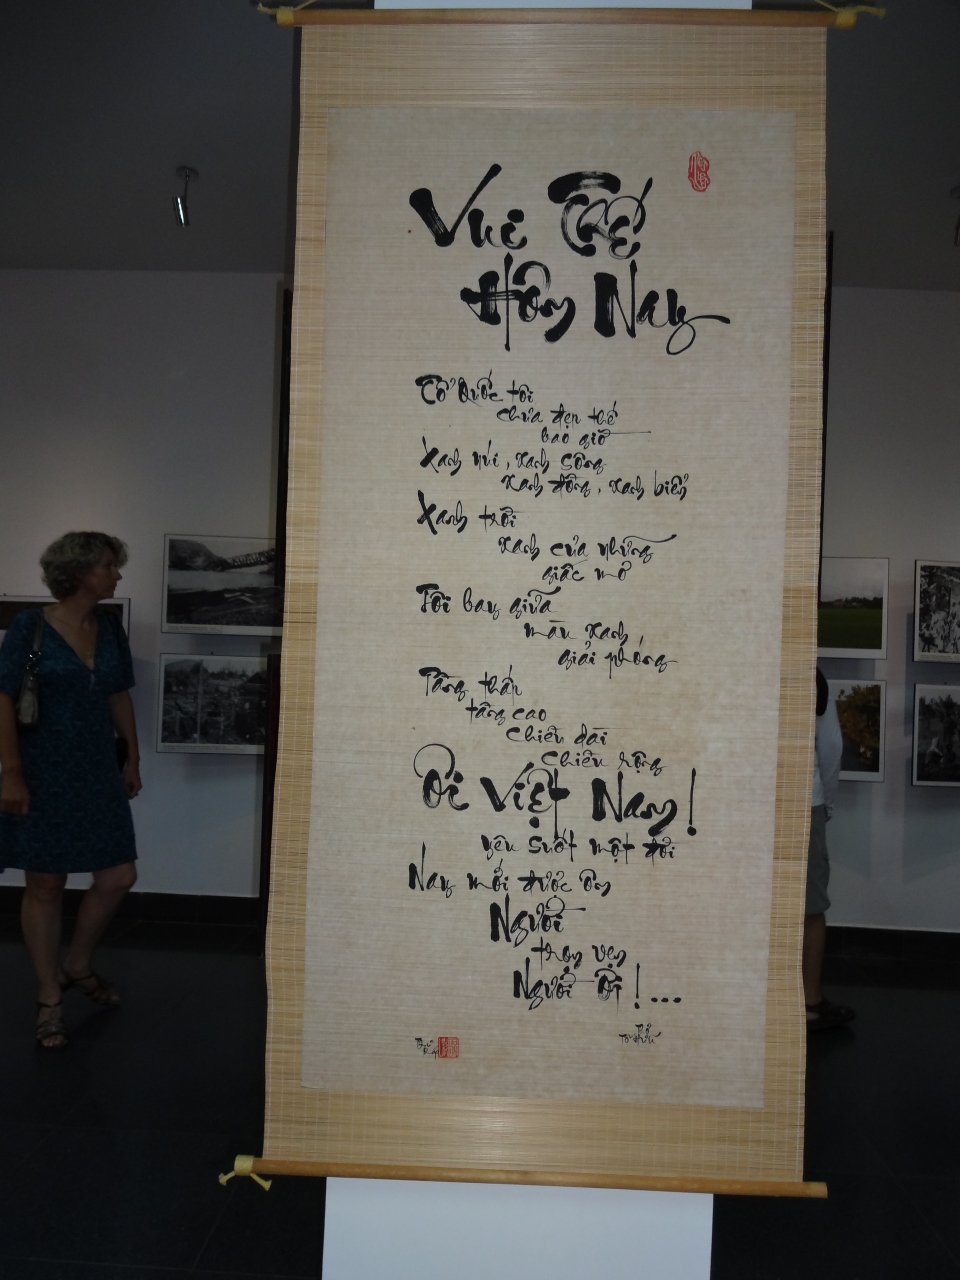 Vui Thế
Hôm Nay
Tổ Quốc tôi
chưa đẹp thế
bao giờ
Xanh núi, xanh sông
xanh đồng, xanh biển
Xanh trời
xanh của những
giấc mơ
Tôi bay giữa
màu xanh
giải phóng
Tầng thấp
tầng cao
chiều dài
chiều rộng
Ôi Việt Nam!
yêu suốt một đời
Nay mới được ôm
Người
trọn vẹn
Người ơi!...
Tố Hữu